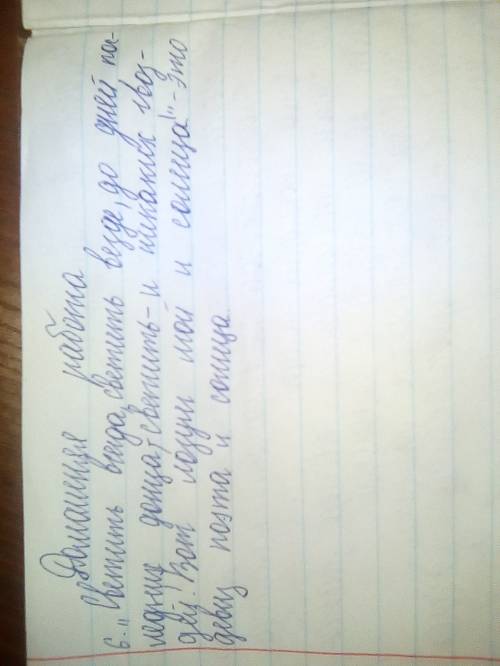 Домашняя работа
6. „Светить всегда, светить везде, до дней по-
ледние донца, светить - и никаких гвоз-
дей! Вот лозунг мой и солнца!" - это
девиз поэта и солнца.